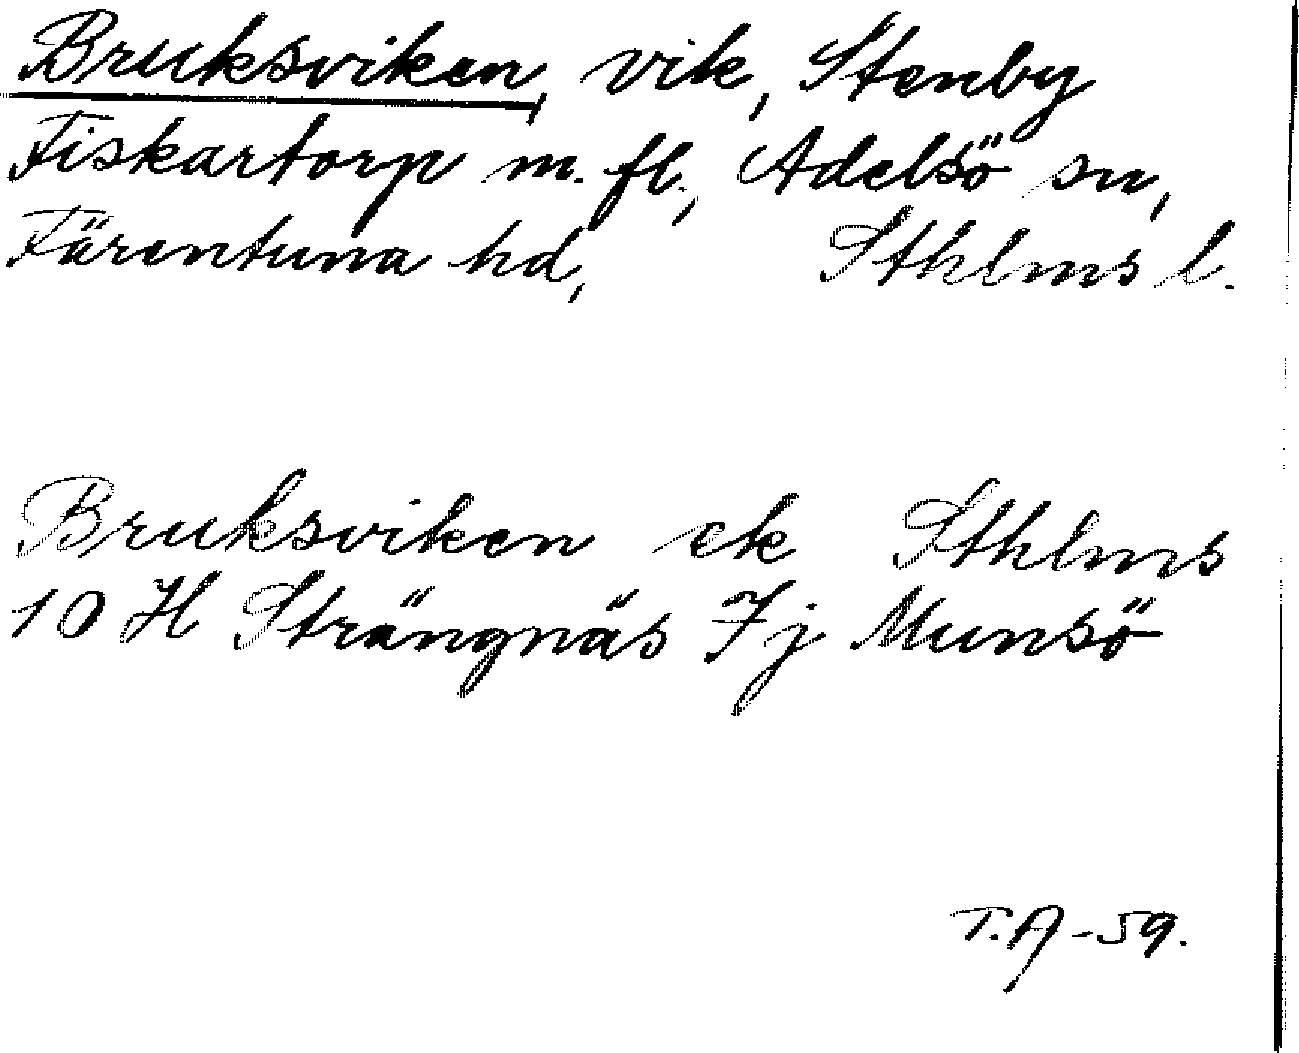 Bruksviken, vik, Stenby
Fiskartorp m. fl., Adelsö sn,
Färentuna hd, Sthlms l.
Bruksviken ek Sthlms
10 H Strängnäs 7 j Munsö
T.A-59.